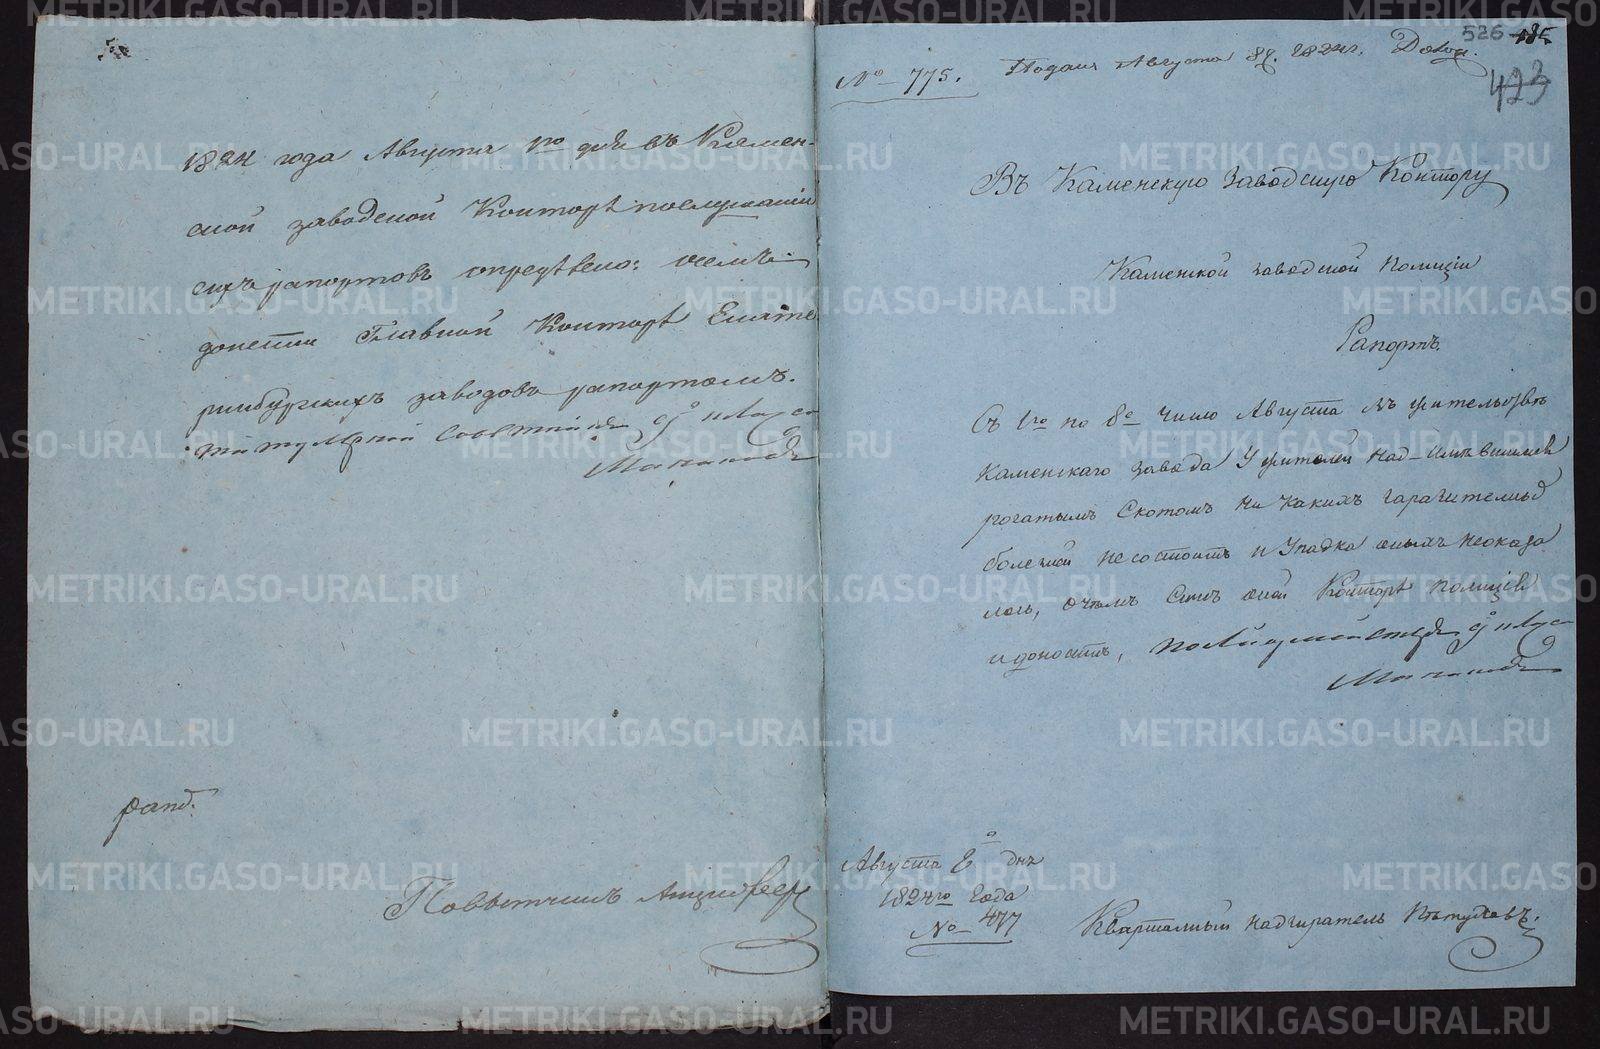 1824 года Августа 1го дня въ Камен-
ской заводской Конторѣ по слушаніи
сихъ рапортовъ опредѣлено: о семъ
донести Главной Конторѣ Екате
ринбургскихъ заводовъ рапортомъ.
рапд.
Повытчикъ
526
423
№ 775.
Подан Августа 8д. 1824г. Докл.
Въ Каменскую Заводскую Контору
Каменской заводской Полиціи
Рапортъ.
Съ 1го по 8е число Августа въ жительствѣ
Каменскаго завода У жителей Над имѣвшимся
рогатымъ Скотомъ ни какихъ
болезней не состоитъ и Упадка онымъ неоказа
лось, о чемъ Симъ оной Конторѣ Полиція
и доноситъ,
Августа 8го дня
1824го Года
№ 477
Квартальный надзиратель Пѣтуховъ.
METRIKI.GASO-URAL.RU